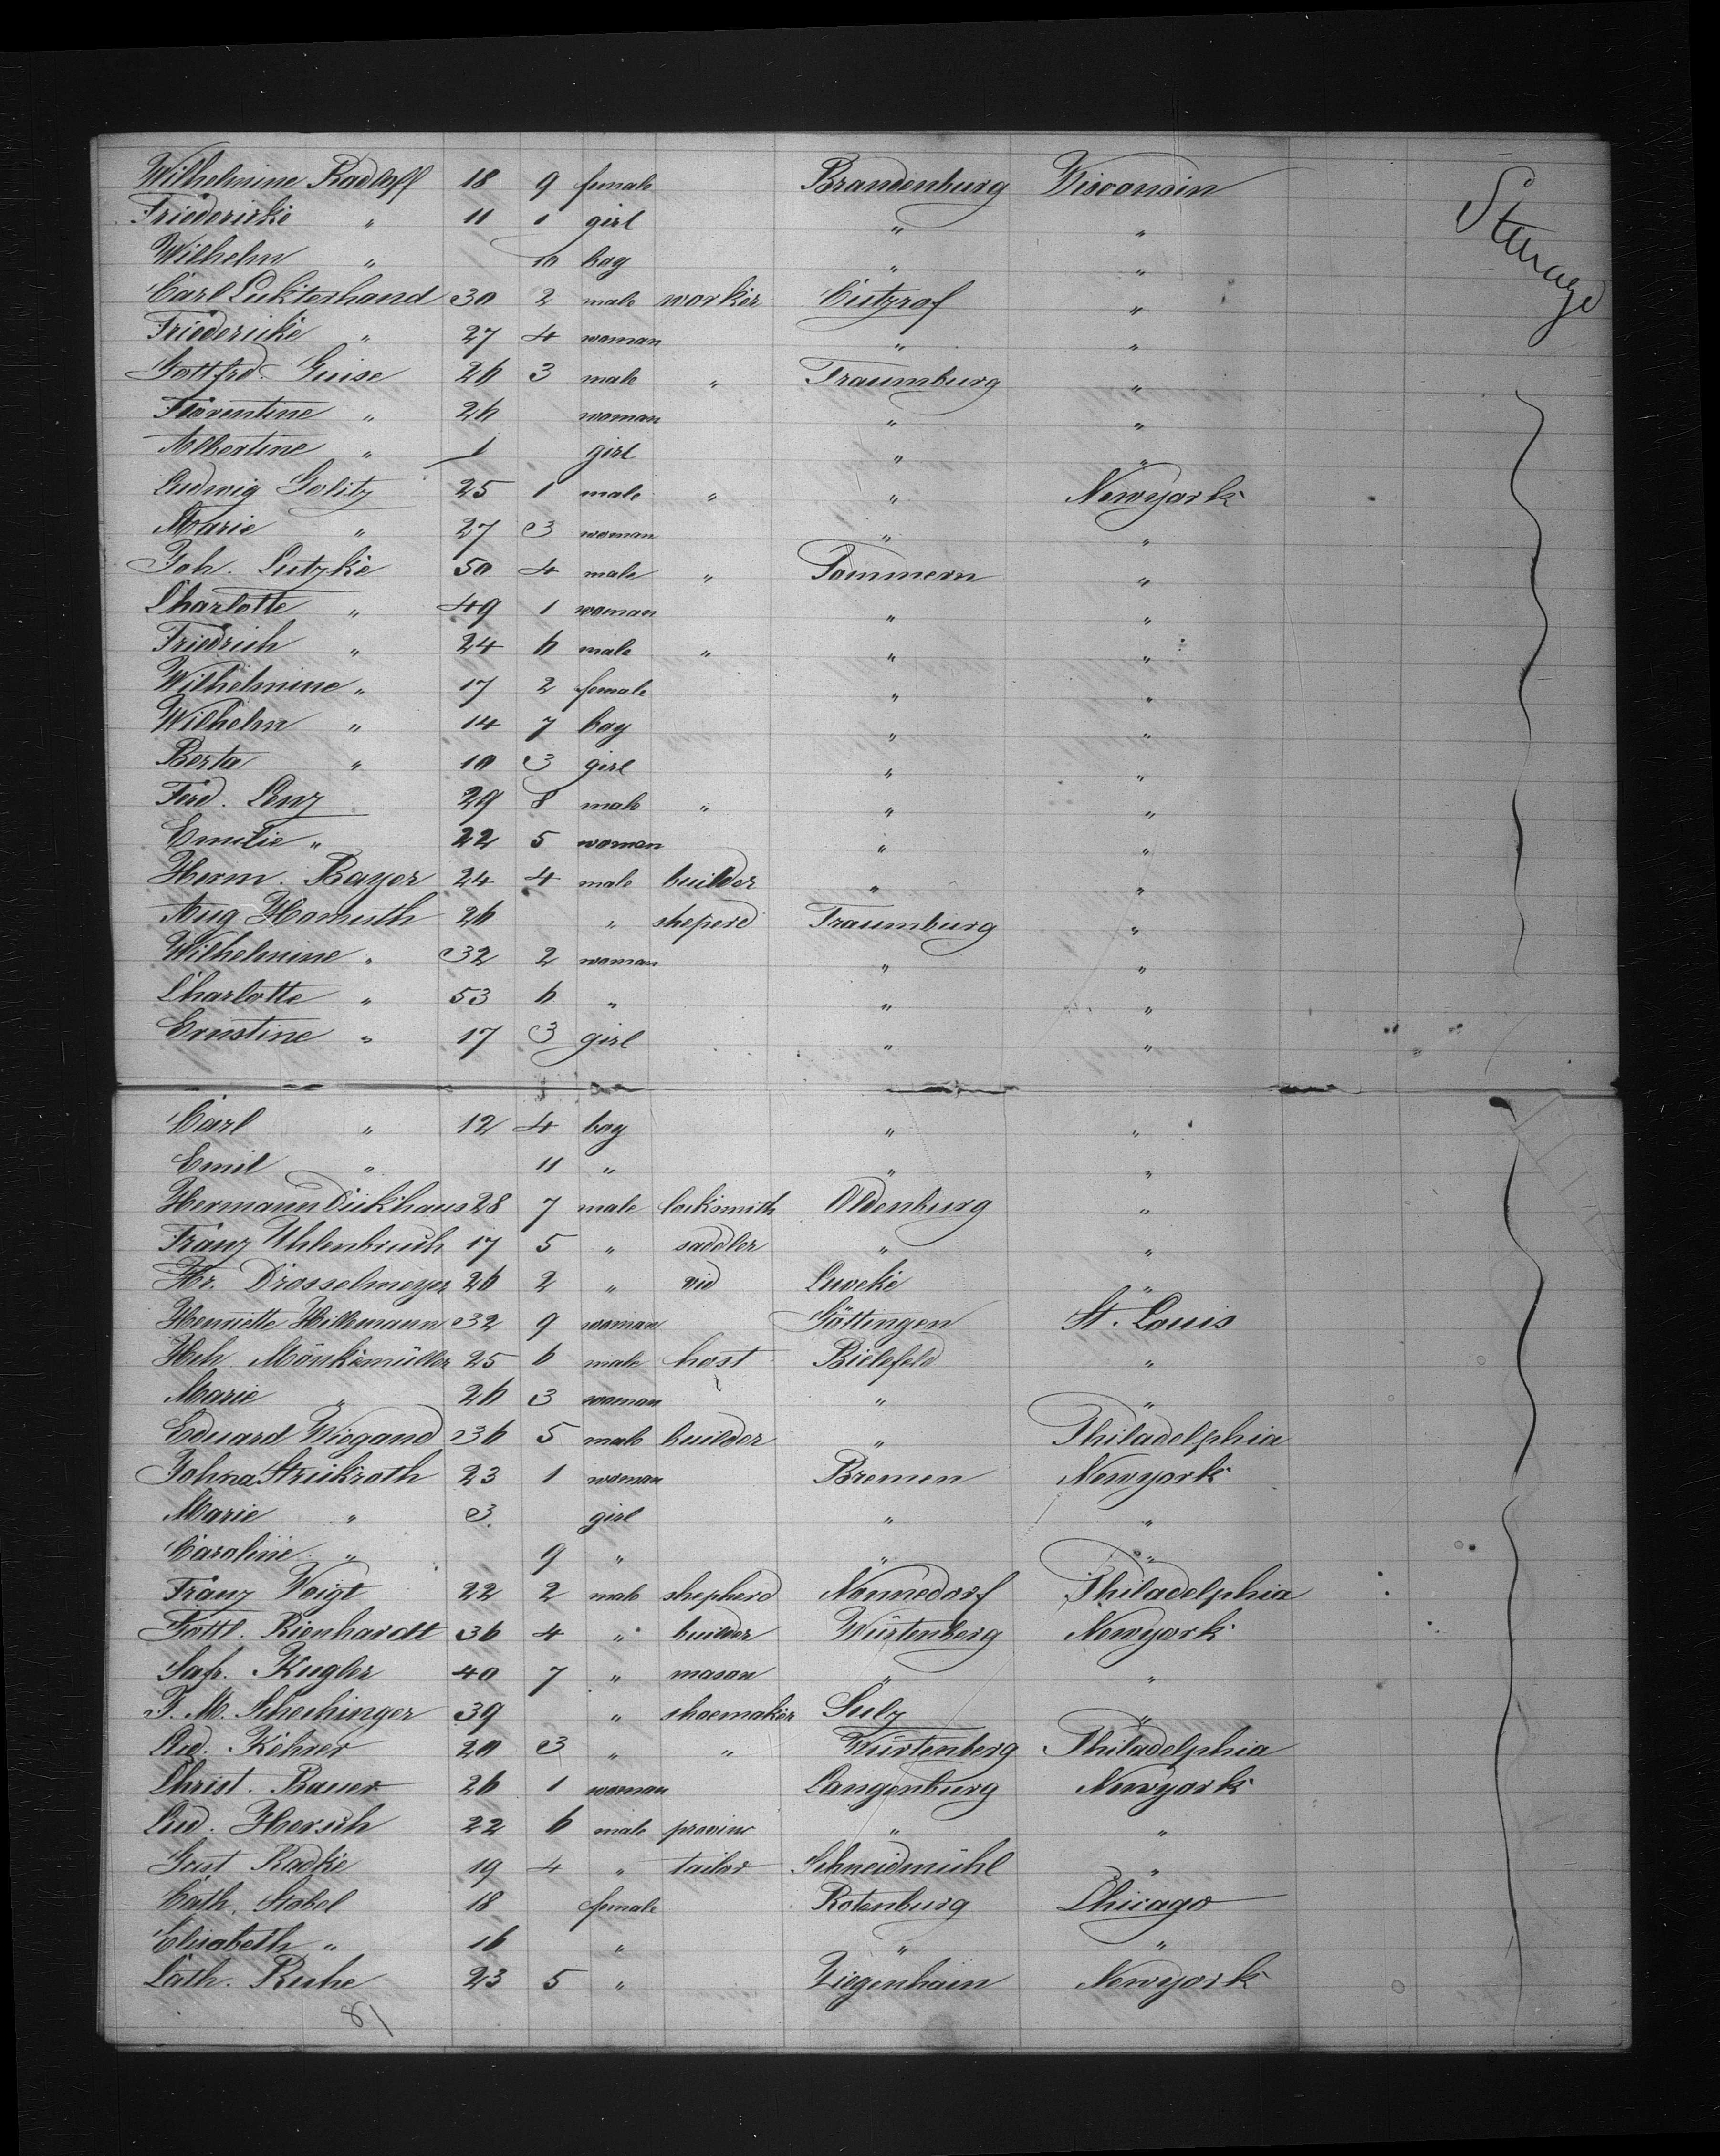 Wilhelmine Radloff 18 9 female Brandenburg Wisconsin
Steerage
Friedericke " 11 1 girl " "
Wilhelm " 10 boy " "
Carl Lukterhand 30 2 male worker "
Friedericke " 27 4 woman " "
Gottfrd. Guise 26 3 male " Traumburg "
Florentine " 26 woman " "
Albertine " 1 girl " "
Ludwig Golitz 25 1 male " " Newyork
Marie " 27 3 woman " "
Joh. Lutzke 50 4 male " Pommern "
Charlotte " 49 1 woman " "
Friedrich " 24 6 male " " "
Wilhelmine " 17 2 female " "
Wilhelm " 14 7 boy " "
Berta " 10 3 girl " "
Ferd. Lenz 29 8 male " " "
Emilie " 22 5 woman " "
Herm. Bayer 24 4 male builder " "
Aug Homuth 26 " sheperd Traumburg "
Wilhelmine " 32 2 woman " "
Charlotte " 53 6 " " "
Ernstine " 17 3 girl " "
Carl " 12 4 boy " "
Emil " 11 " " "
Hermann Dickhaus 28 7 male locksmith Oldenburg "
Franz Uhlenbruch 17 5 " saddler " "
Hr. Drosselmeyer 26 2 " Luveke "
Henriette Hillmann 32 9 woman Göttingen St. Louis
Hch. Mönkemüller 25 6 male host Bielefeld "
Marie " 26 3 woman " "
Eduard Wiegand 36 5 male builder " Philadelphia
Johna Strickroth 23 1 woman Bremen Newyork
Marie " 3 girl " "
Caroline " 9 " " "
Franz Voigt 22 2 male shepherd Nonnedorf Philadelphia
Gottl. Rienhardt 36 4 " builder Würtenberg Newyork
Kugler 40 7 " mason " "
J. M. Schechinger 39 " shoemaker Sulz "
Lud. Kehrer 20 3 " " Würtenberg Philadelphia
Christ. Bauer 26 1 woman Langenburg Newyork
Lud. Horsch 22 6 male " "
Gust Radke 19 4 " tailor Schneidmühl "
Cath. Stobel 18 female Rotenburg Chicago
Elisabeth " 16 " " "
Cath. Ruhe 23 5 " Ziegenhain Newyork
81